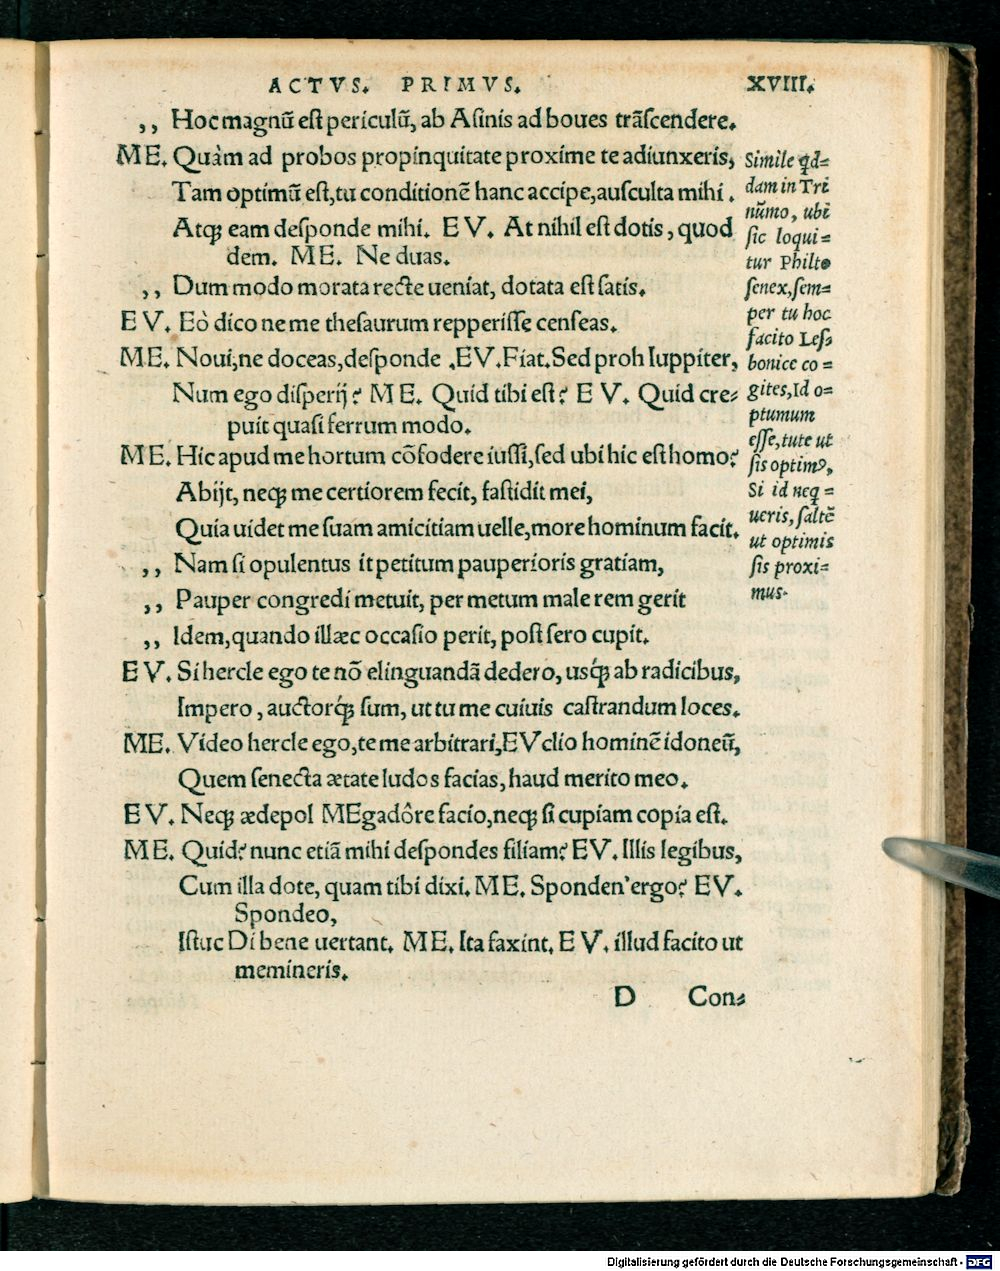 ACTVS. PRIMVS. XVIII.
,, Hoc magnũ est periculũ, ab Asinis ad boues trãscendere.
ME. Quàm ad probos propinquitate proxime te adiunxeris,
Tam optimũ est, tu conditionẽ hanc accipe, ausculta mihi.
Atq; eam desponde mihi. EV. At nihil est dotis, quod
dem. ME. Ne duas.
,, Dum modo morata recte ueniat, dotata est satis.
EV. Eò dico ne me thesaurum repperisse censeas.
ME. Noui, ne doceas, desponde. EV. Fiat. Sed proh Iuppiter,
Num ego disperij? ME. Quid tibi est? EV. Quid cre-
puit quasi ferrum modo.
ME. Hic apud me hortum cõfodere iussi, sed ubi hic est homo?
Abijt, neq; me certiorem fecit, fastidit mei,
Quia uidet me suam amicitiam uelle, more hominum facit.
,, Nam si opulentus it petitum pauperioris gratiam,
,, Pauper congredi metuit, per metum male rem gerit
,, Idem, quando illæc occasio perit, post sero cupit.
EV. Si hercle ego te nõ elinguandã dedero, usq́; ab radicibus,
Impero, auctorq́; sum, ut tu me cuiuis castrandum loces.
ME. Video hercle ego, te me arbitrari, EVclio hominẽ idoneũ,
Quem senecta ætate ludos facias, haud merito meo.
EV. Neq; ædepol MEgadôre facio, neq; si cupiam copia est.
ME. Quid? nunc etiã mihi despondes filiam? EV. Illis legibus,
Cum illa dote, quam tibi dixi. ME. Sponden' ergo? EV.
Spondeo,
Istuc Di bene uertant. ME. Ita faxint. EV. illud facito ut
memineris.
D Con-
Simile qd-
dam in Tri
nũmo, ubi
sic loqui-
tur Philto
senex, sem-
per tu hoc
facito Les-
bonice co-
gites, Id o-
ptumum
esse, tute ut
sis optimꝰ,
Si id neq-
ueris, saltẽ
ut optimis
sis proxi-
mus.
Digitalisierung gefördert durch die Deutsche Forschungsgemeinschaft - DFG